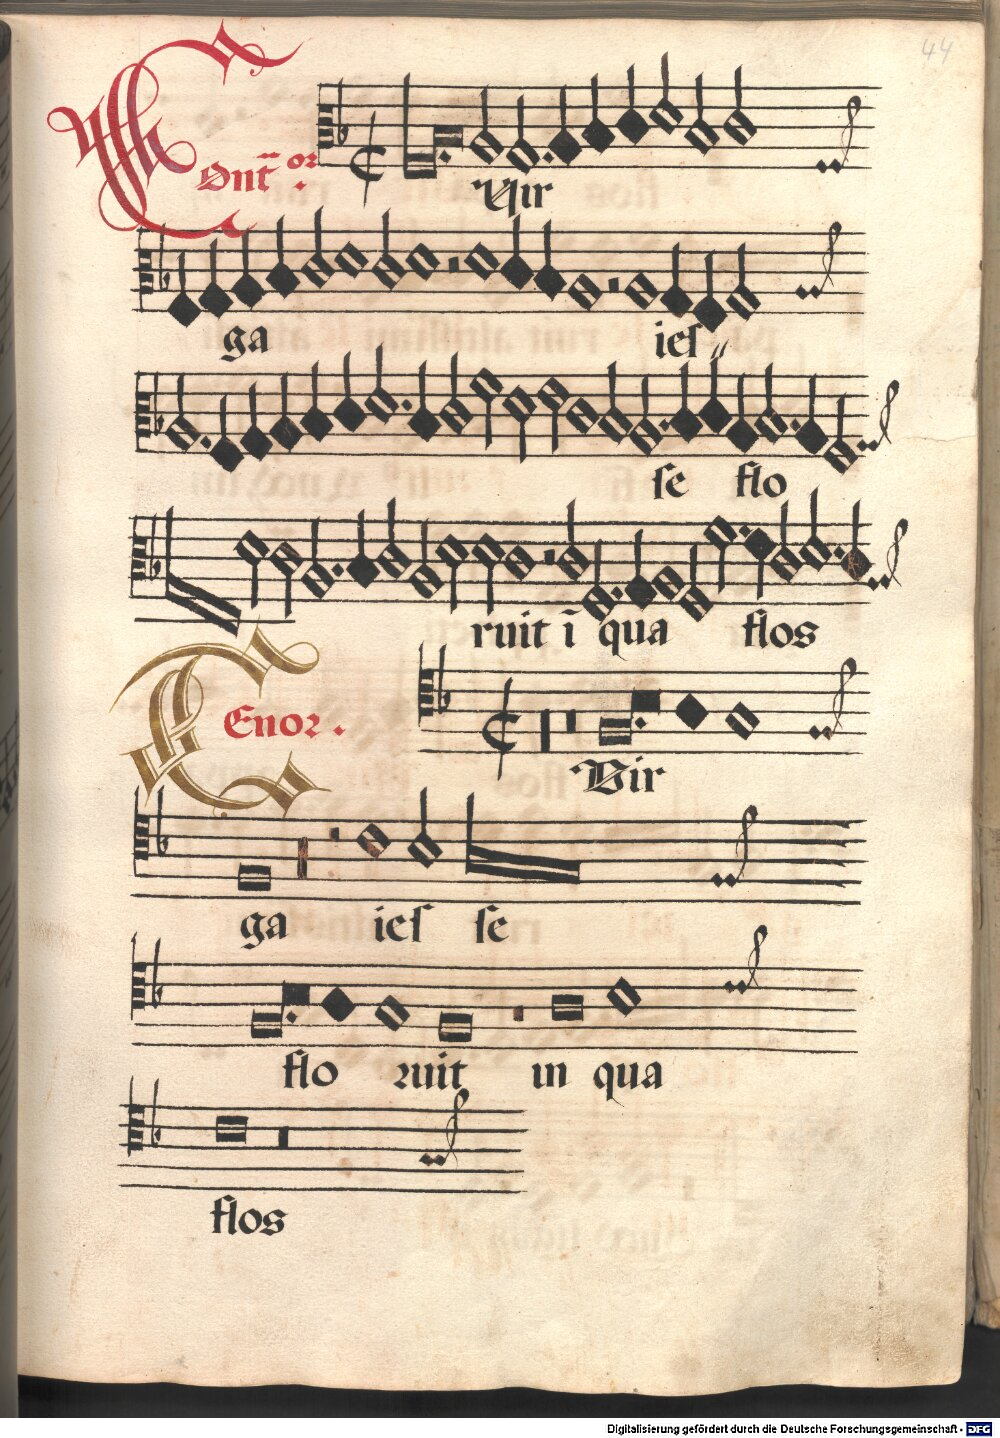 44
Contͬ or.
Vir
ga iess
se flo
ruit ī qua flos
Tenor.
Vir
ga ies se
flo ruit in qua
flos
Digitalisierung gefördert durch die Deutsche Forschungsgemeinschaft - DFG